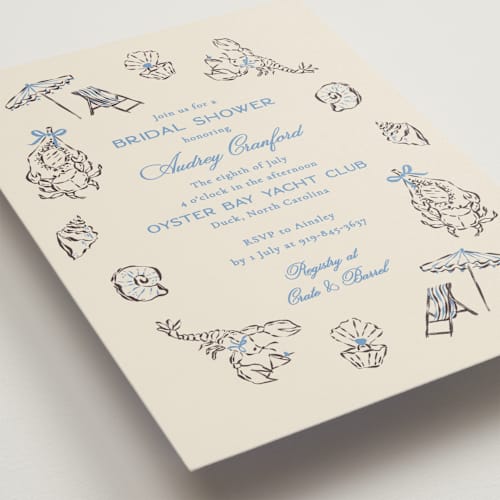 Join us for a
BRIDAL SHOWER
honoring
Audrey Cranford
The eighth of July
4 o'clock in the afternoon
OYSTER BAY YACHT CLUB
Duck, North Carolina
RSVP to Ainsley
by 1 July at 919-845-3637
Registry at
Crate & Barrel